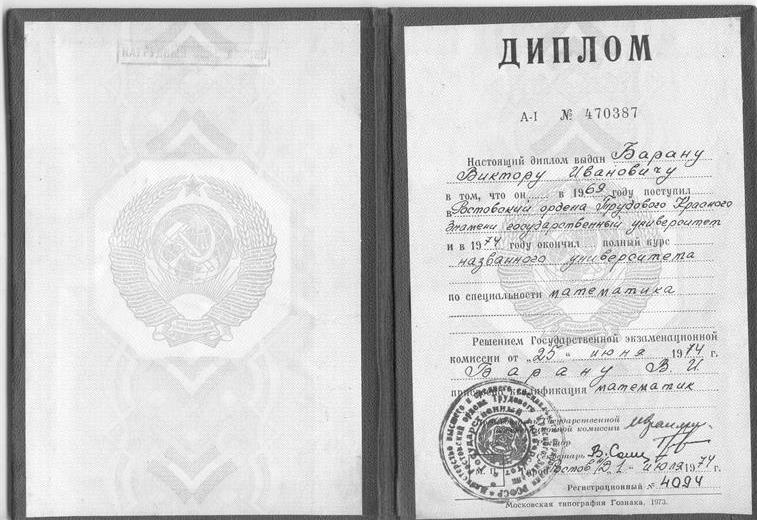 ДИПЛОМ
А-I № 470387
Настоящий диплом выдан Барану
Виктору Ивановичу
в том, что он в 1969 году поступил
в Ростовский ордена Трудового Красного
Знамени государственный университет
и в 1974 году окончил полный курс
названного университета
по специальности математика
Решением Государственной экзаменационной
комиссии от „25“ июня 1974 г.
Барану В. И.
квалификация математик
Государственной
комиссии
М. П.
Ростов 1 июля 1974 г.
Регистрационный № 4094
Московская типография Гознака, 1973.